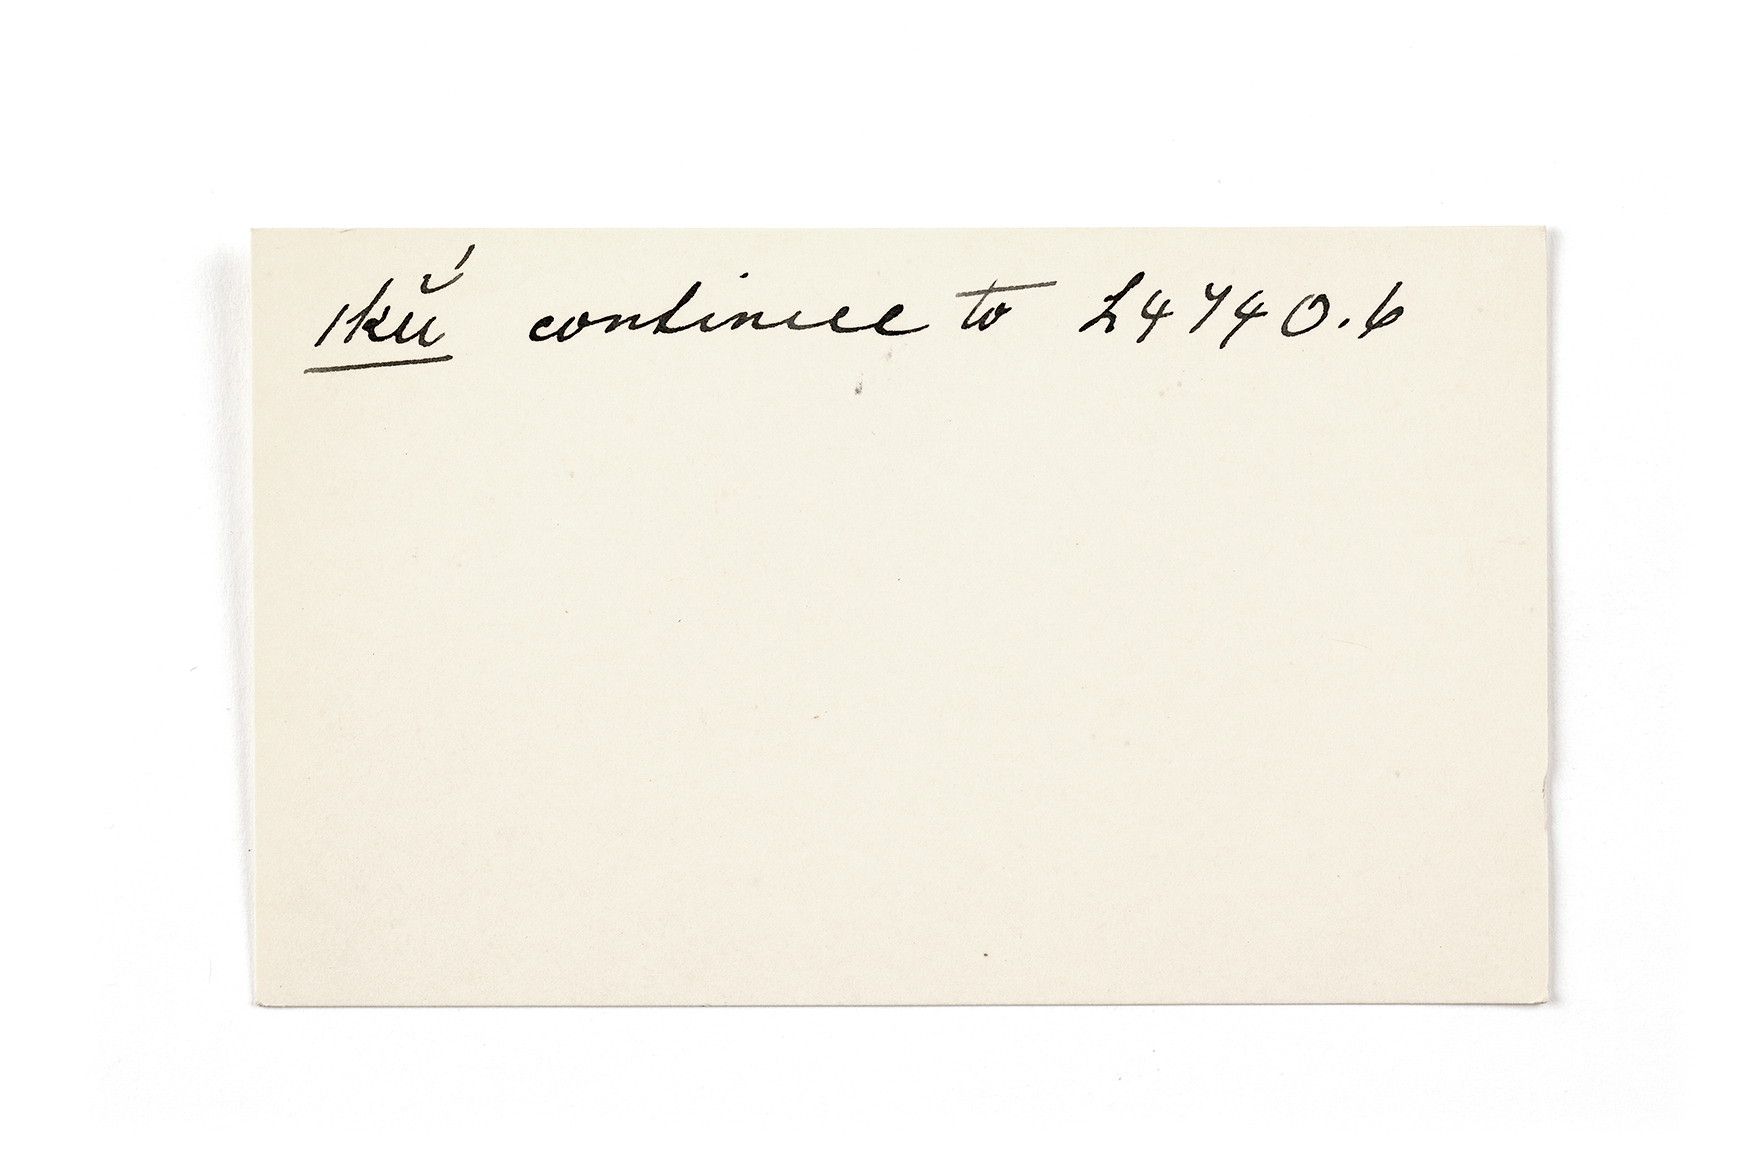 ikŭ́ continue to L4740.6